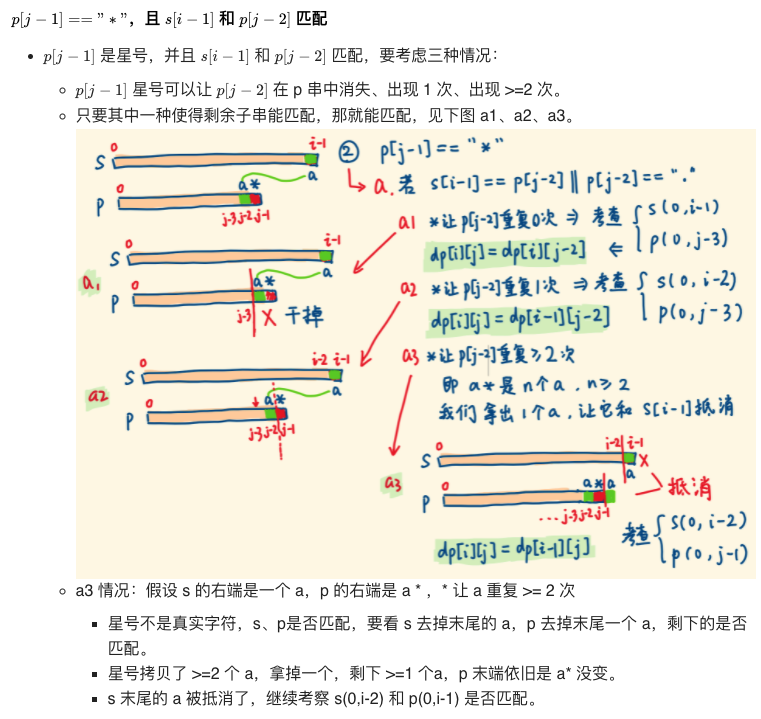 p[j − 1] == "∗"，且 s[i − 1] 和 p[j − 2] 匹配
• p[j − 1] 是星号，并且 s[i − 1] 和 p[j − 2] 匹配，要考虑三种情况：
◦ p[j − 1] 星号可以让 p[j − 2] 在 p 串中消失、出现 1 次、出现 >=2 次。
◦ 只要其中一种使得剩余子串能匹配，那就能匹配，见下图 a1、a2、a3。
0 i-1
S
a* a
0
P
j-3 j-2 j-1
② p[j-1] == "*"
a. 若 s[i-1] == p[j-2] || p[j-2] == "."
a1 *让p[j-2]重复0次 ⇒ 考查 { s(0,i-1)
dp[i][j] = dp[i][j-2] ⇐ p(0,j-3)
0 i-1
S
a1 a* a
0
P
j-3 X 干掉
a2 *让p[j-2]重复1次 ⇒ 考查 { s(0,i-2)
dp[i][j] = dp[i-1][j-2] p(0,j-3)
0 i-2 i-1
S
a2 a* a
0
P
j-3 j-2 j-1
a3 *让p[j-2]重复≥2次
即 a* 是 n个a，n≥2
我们拿出1个a，让它和 s[i-1]抵消
0 i-2 i-1
S X
a
a3 0 a* a 抵消
P
... j-3 j-2 j-1
考查 { s(0,i-2)
dp[i][j] = dp[i-1][j] p(0,j-1)
◦ a3 情况：假设 s 的右端是一个 a，p 的右端是 a * ，* 让 a 重复 >= 2 次
▪ 星号不是真实字符，s、p是否匹配，要看 s 去掉末尾的 a，p 去掉末尾一个 a，剩下的是否
匹配。
▪ 星号拷贝了 >=2 个 a，拿掉一个，剩下 >=1 个a，p 末端依旧是 a* 没变。
▪ s 末尾的 a 被抵消了，继续考察 s(0,i-2) 和 p(0,i-1) 是否匹配。